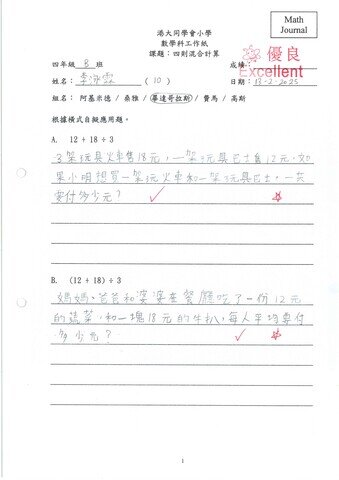 Math
Journal
港大同學會小學
數學科工作紙
課題：四則混合計算
優良
Excellent
四年級 B 班
成績：
姓名： (10)
日期：13-2-2025
組別：阿基米德 / 桑雅 / 畢達哥拉斯 / 費馬 / 高斯
根據橫式自擬應用題。
A. 12 + 18 ÷ 3
3架玩具火車售18元，一架玩具巴士售12元，如
果小明想買一架玩具火車和一架玩具巴士，一共
要付多少元？
B. (12 + 18) ÷ 3
媽媽、爸爸和婆婆在餐廳吃了一份12元
的蔬菜，和一塊18元的牛扒，每人平均要付
多少元？
1